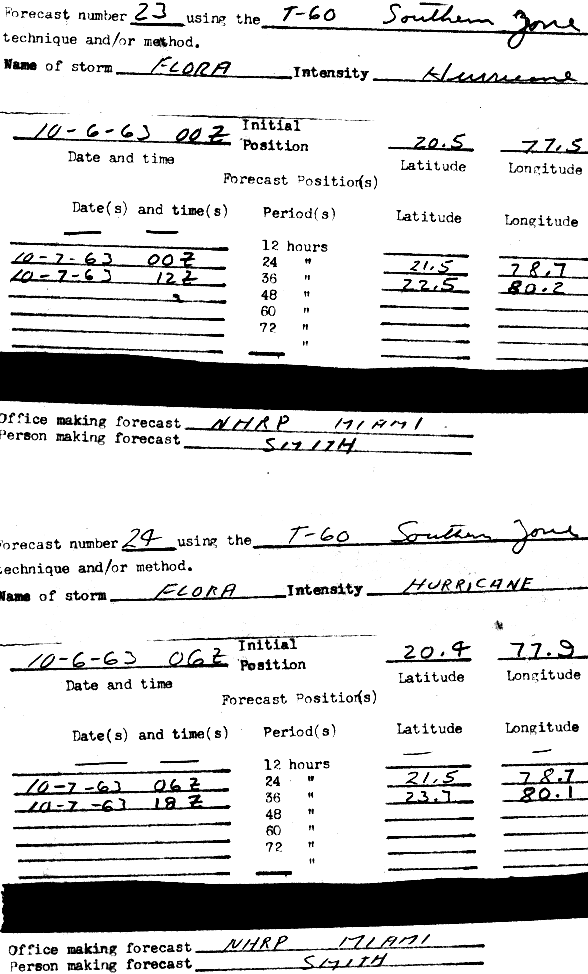 Forecast number 23 using the T-60 Southern Zone
technique and/or method.
Name of storm FLORA Intensity Hurricane
10-6-63 00Z Initial Position 20.5 77.5
Date and time Latitude Longitude
Forecast Position(s)
Date(s) and time(s) Period(s) Latitude Longitude
12 hours
10-7-63 00Z 24 " 21.5 78.7
10-7-63 12Z 36 " 22.5 80.2
48 "
60 "
72 "
"
Office making forecast NHRP MIAMI
Person making forecast SMITH
Forecast number 24 using the T-60 Southern Zone
technique and/or method.
Name of storm FLORA Intensity HURRICANE
10-6-63 06Z Initial Position 20.4 77.9
Date and time Latitude Longitude
Forecast Position(s)
Date(s) and time(s) Period(s) Latitude Longitude
12 hours
10-7-63 06Z 24 " 21.5 78.7
10-7-63 18Z 36 " 80.1
48 "
60 "
72 "
"
Office making forecast NHRP MIAMI
Person making forecast SMITH